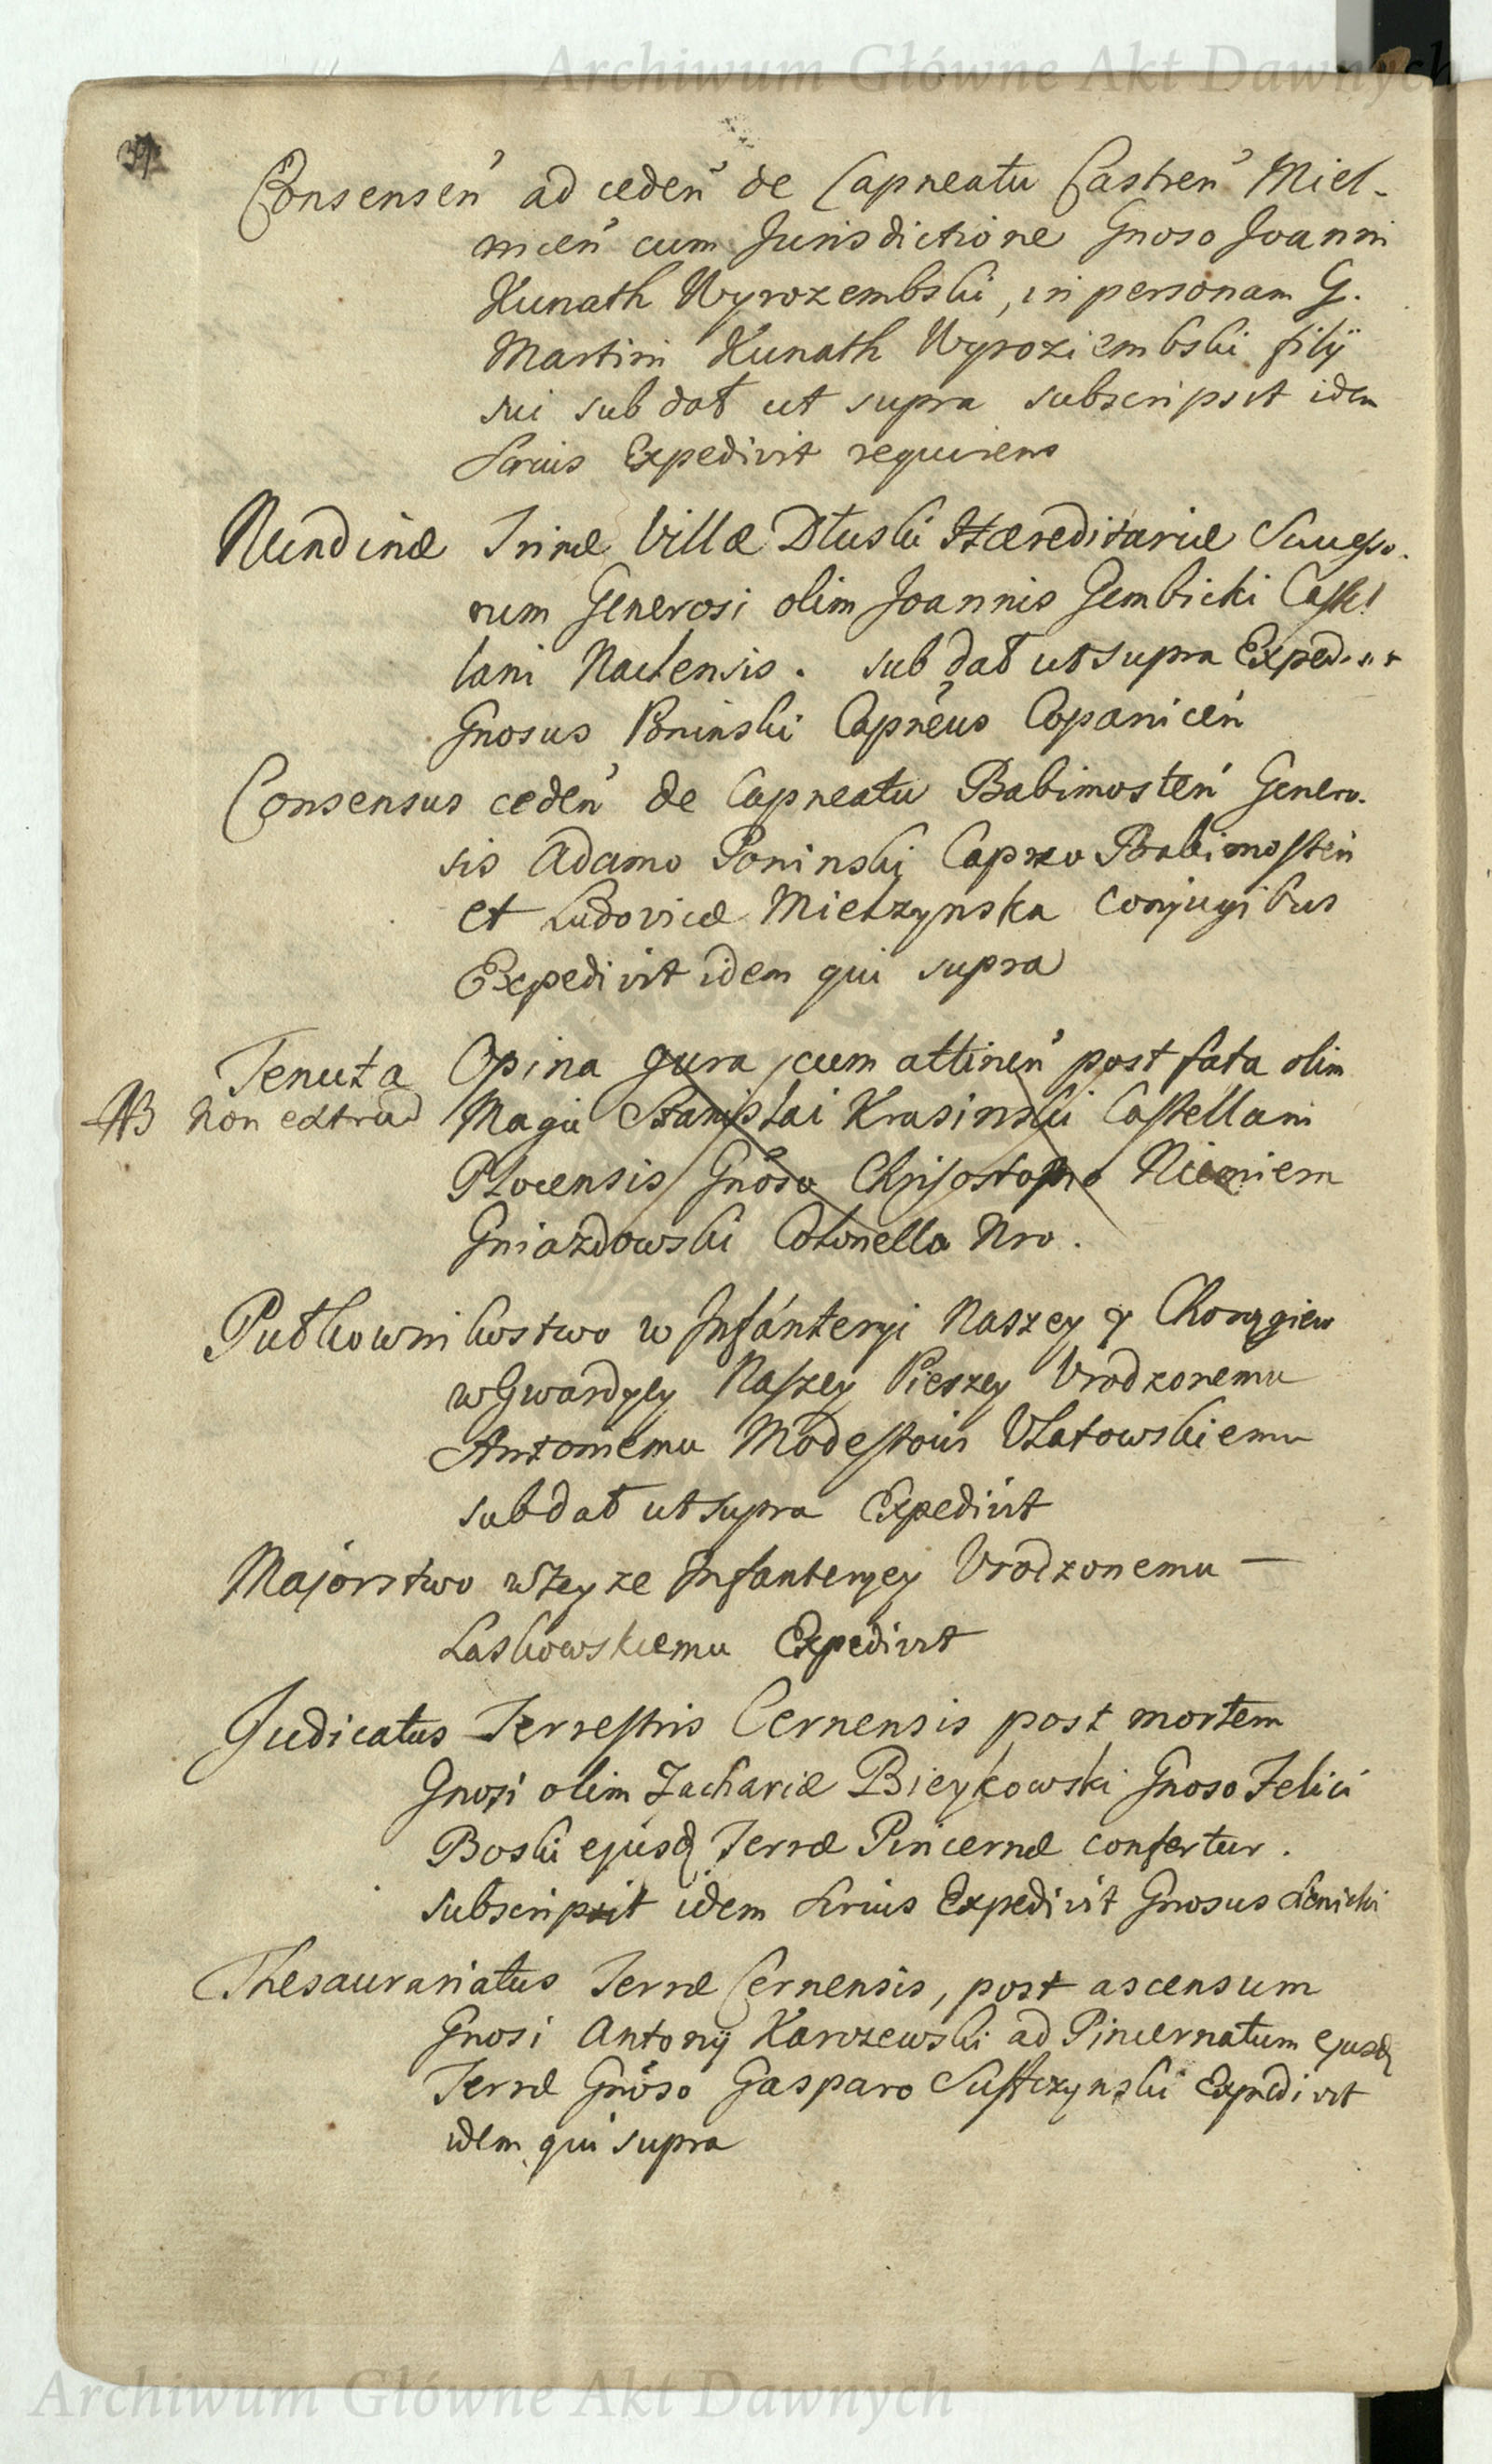 Archiwum Główne Akt Dawnych
37
Consensen̄ ad ceden̄ de Capneatu Castren̄ Miel-
nicen̄ cum Jurisdictione Gnoso Joanni
Kunath Wyrozembski, in personam G.
Martini Kunath Wyroziembski filij
sui sub dat̄ ut supra subscripsit idem
Expedivit requirens
Nundinæ Trinæ Villæ Dłuski Hæreditariæ
rum Generosi olim Joannis Gembicki Castel
lani Naclensis. sub dat̄ ut supra
Gnosus Poninski Capneus Copanicen̄
Consensus ceden̄ de Capneatu Babimosten̄ Genero.
sis Adamo Poninski Capneo Babimosten̄
et Ludovicæ Mielzynska Conjugibus
Expedivit idem qui supra
Tenuta Opina gura cum attinen̄ post fata olim
NB Non extrad Magci Stanislai Krasinski Castellani
Plocensis Gnoso Chrisostomo Niemiera
Gniazdowski Colonello Nro.
Pułkownikostwo w Infánteryi Naszey y Chorągiew
w Gwardyey Naszey Pieszey Urodzonemu
Antoniemu Modestowi Ulatowskiemu
sub dat̄ ut supra Expedivit
Majorstwo w teyze Infanteryey Urodzonemu —
Laskowskiemu Expedivit
Judicatus Terrestris Cernensis post mortem
Gnosi olim Zachariæ Bieykowski Gnoso Felici
Boski ejusq Terræ Pincernæ confertur.
subscripsit idem Expedivit Gnosus Lenicki
Thesaurariatus Terræ Cernensis, post ascensum
Gnosi Antonij Karczewski ad Pincernatum ejusq
Terræ Gnoso Gasparo Expedivit
idem qui supra
Archiwum Główne Akt Dawnych